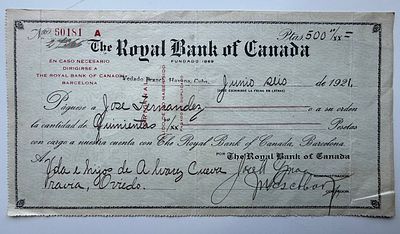 No. 50181 A
Ptas. 500 00/xx =
The Royal Bank of Canada
FUNDADO 1869
EN CASO NECESARIO
DIRIGIRSE A
THE ROYAL BANK OF CANADA
BARCELONA
Vedado Branch, Havana, Cuba, Junio seis de 1921.
(DEBE ESCRIBIRSE LA FECHA EN LETRAS)
Páguese a Jose Fernandez o a su orden
la cantidad de Quinientas 00/xx Pesetas
con cargo a nuestra cuenta con The Royal Bank of Canada, Barcelona.
POR The Royal Bank of Canada
A Vda e hijos de Alvarez Cueva
Pravia, Oviedo.